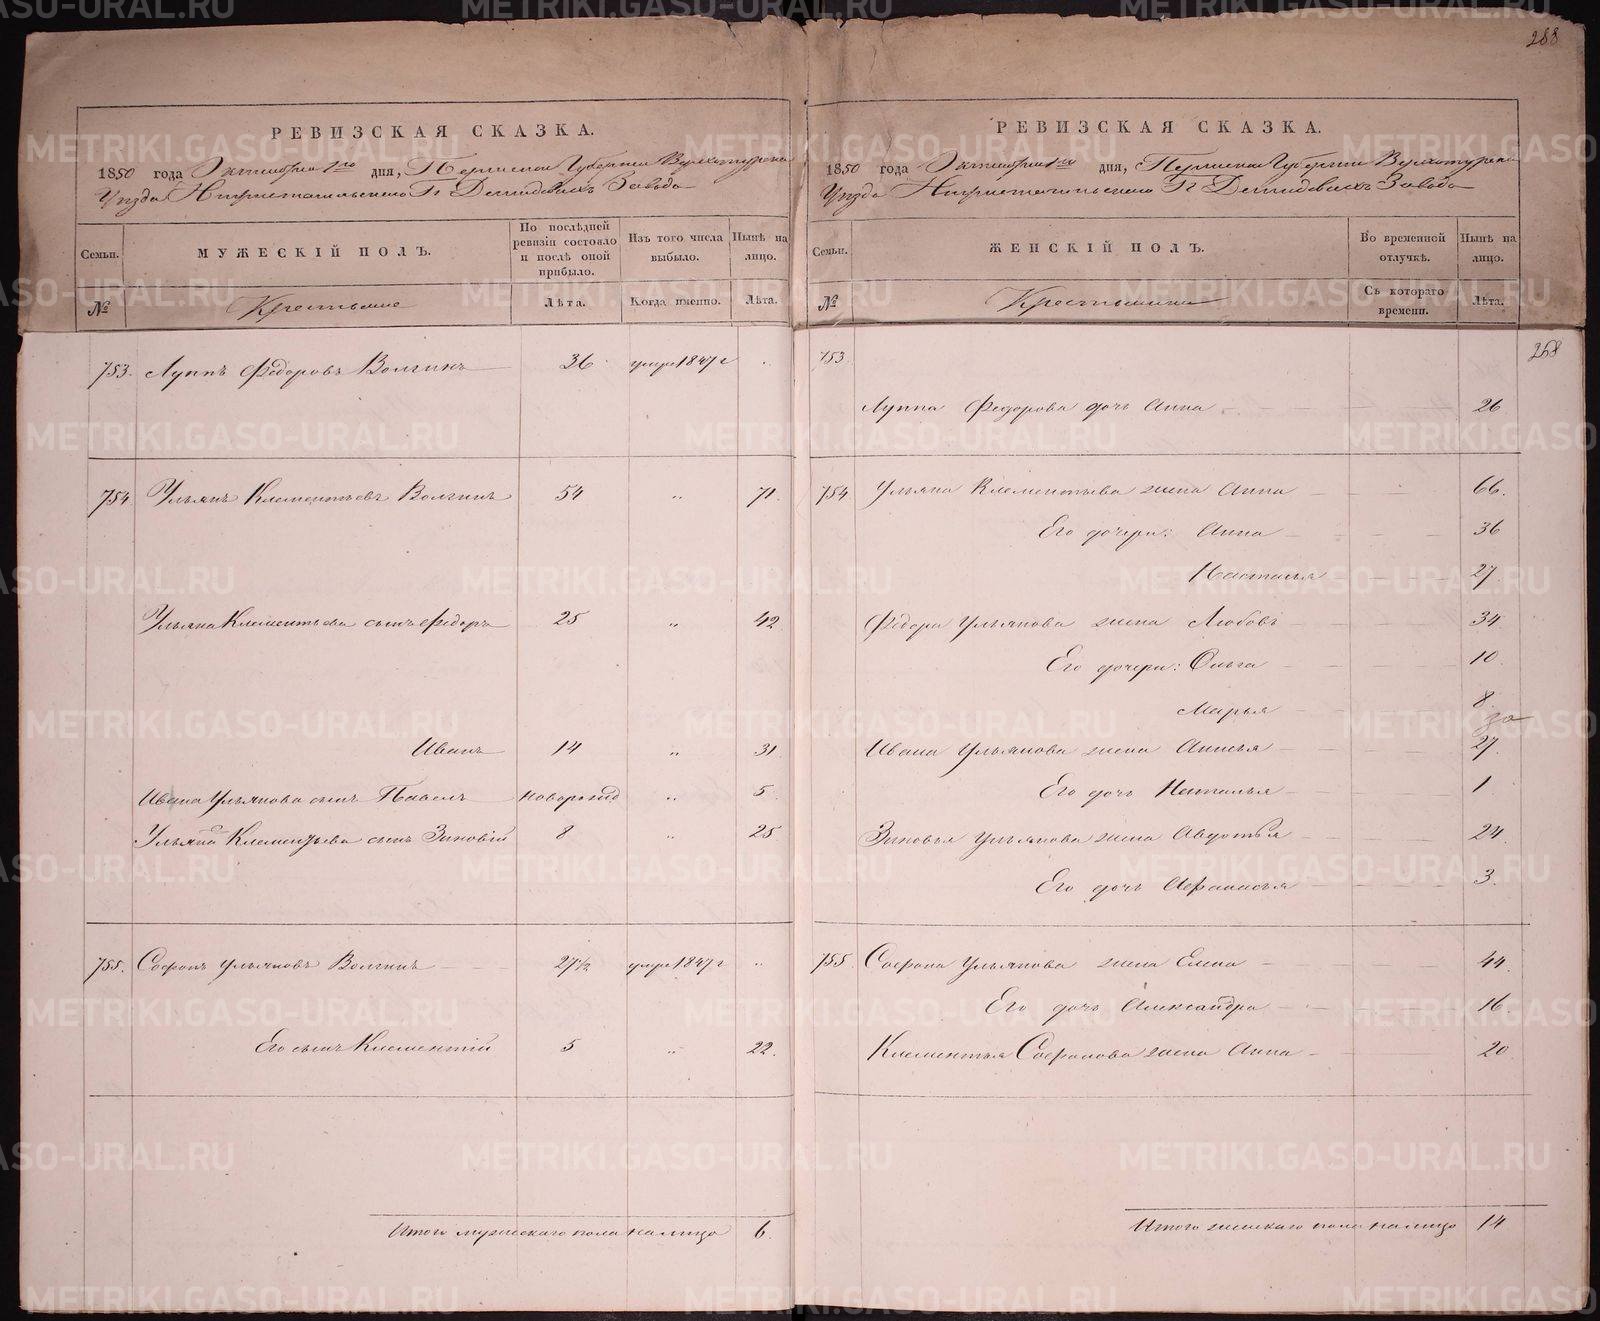 288
РЕВИЗСКАЯ СКАЗКА.
1850 года Октября 1го дня, Пермской Губернии Верхотурскаго
Уѣзда Г. Демидовыхъ Завода
Семьи.
МУЖЕСКІЙ ПОЛЪ.
По послѣдней ревизіи состояло и послѣ оной прибыло.
Изъ того числа выбыло.
Нынѣ на лицо.
№
Крестьяне
Лѣта.
Когда именно.
Лѣта.
753. Луппъ Федоровъ Волгинъ 36 умре 1847 г
754. Ульянъ Клементьевъ Волгинъ 54 „ 71.
Ульяна Клементьева сынъ Федоръ 25 „ 42
Иванъ 14 „ 31
Ивана Ульянова сынъ Павелъ новорожд „ 5
Ульяна Клементьева сынъ Зиновій 8 „ 25
755. Софонъ Ульяновъ Волгинъ 27½ умре 1847 г „
Его сынъ Клементій 5 „ 22.
Итого мужескаго пола налицо 6.
РЕВИЗСКАЯ СКАЗКА.
1850 года Октября 1го дня, Пермской Губерніи Верхотурскаго
Уѣзда Г. Демидовыхъ Завода
Семьи.
ЖЕНСКІЙ ПОЛЪ.
Во временной отлучкѣ.
Нынѣ на лицо.
№
Крестьянки
Съ котораго времени.
Лѣта.
753.
268
Луппа Федорова дочь Анна 26
754 Ульяна Клементьева жена Анна 66.
Его дочери: Анна 36
Настасья 27
Федора Ульянова жена Любовь 34
Его дочери: Ольга 10
Марья 8.
Ивана Ульянова жена Анисья 27.
Его дочь Наталья 1
Зиновья Ульянова жена Авдотья 24
Его дочь Афанасья 3.
755 Софона Ульянова жена Елена 44
Его дочь Александра 16
Клементья Софонова жена Анна 20
Итого женскаго пола налицо 14
METRIKI.GASO-URAL.RU